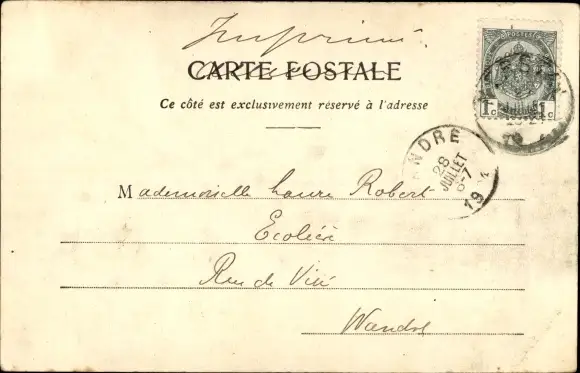 Imprimé.
CARTE POSTALE
Ce côté est exclusivement réservé à l'adresse
POSTES
1c 1c
ANDRE
28
JUILLET
6-7
19
Mademoiselle Laure Robert
Ecolière
Rue de Visé
Wandre